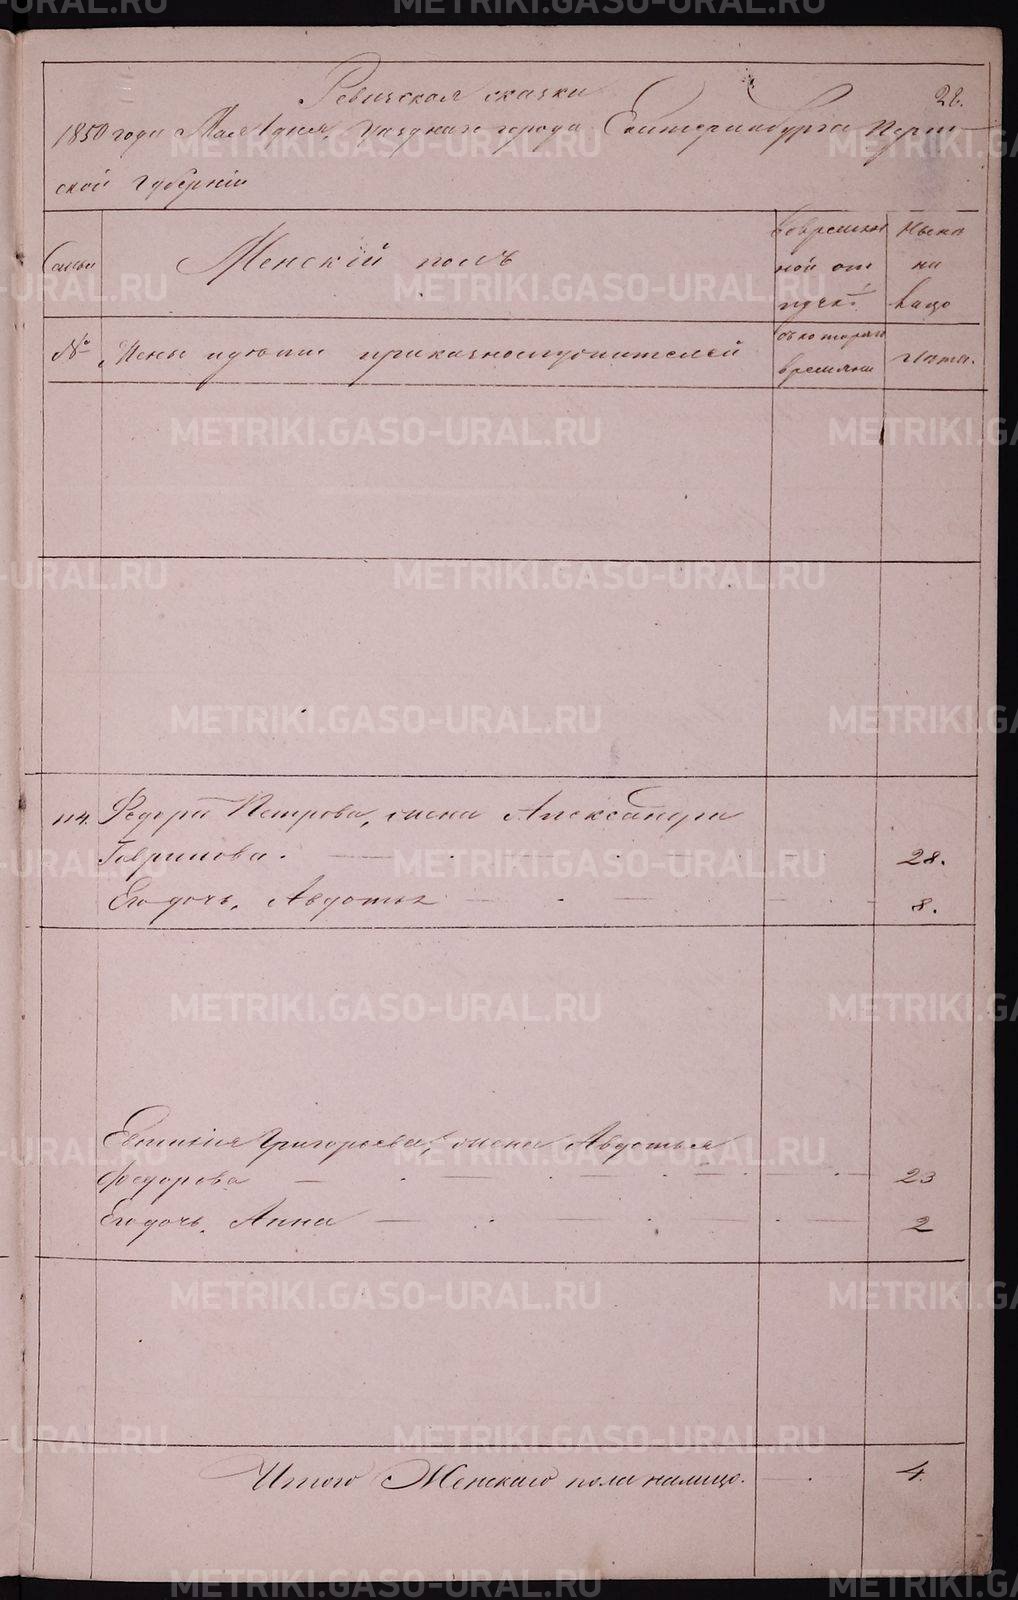 Ревизская сказка
28.
1850 года Мая 1 дня, уездная города Екатеринбурга Перм-
ской губерніи
Семьи
Женскій полъ
Во времен
ной от
лучке
Ныне
на
лицо
№
съ котораго
времяни
лета.
114. Федора Петрова, жена Александра
Гаврилова. 28.
Его дочь, Авдотья 8.
Евтихія Григорьева, жена Авдотья
Федорова 23
Его дочь, Анна 2
Итого Женскаго пола налицо. 4.
METRIKI.GASO-URAL.RU